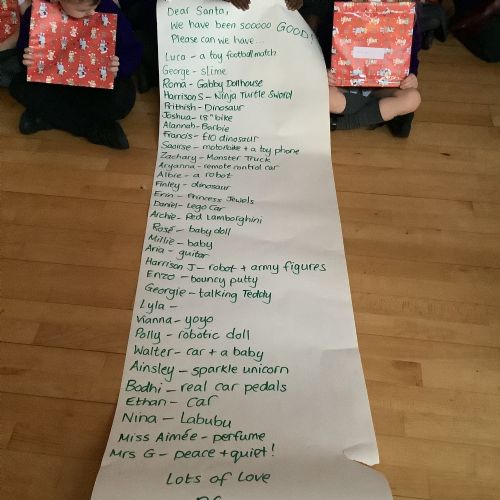 Dear Santa,
We have been sooooo GOOD!
Please can we have...
Luca - a toy football match
George - slime
Roma - Gabby Dollhouse
Harrison S - Ninja Turtle Sword
Prithish - Dinosaur
Joshua - 18" bike
Alannah - Barbie
Francis - £10 dinosaur
Saoirse - motorbike + a toy phone
Zachary - Monster Truck
Aryanna - remote control car
Albie - a robot
Finley - dinosaur
Erin - Princess Jewels
Daniel - Lego Car
Archie - Red Lamborghini
Rosé - baby doll
Millie - baby
Aria - guitar
Harrison J - robot + army figures
Enzo - bouncy putty
Georgie - talking Teddy
Lyla -
Vianna - yoyo
Polly - robotic doll
Walter - car + a baby
Ainsley - sparkle unicorn
Bodhi - real car pedals
Ethan - car
Nina - Labubu
Miss Aimée - perfume
Mrs G - peace + quiet!
Lots of Love